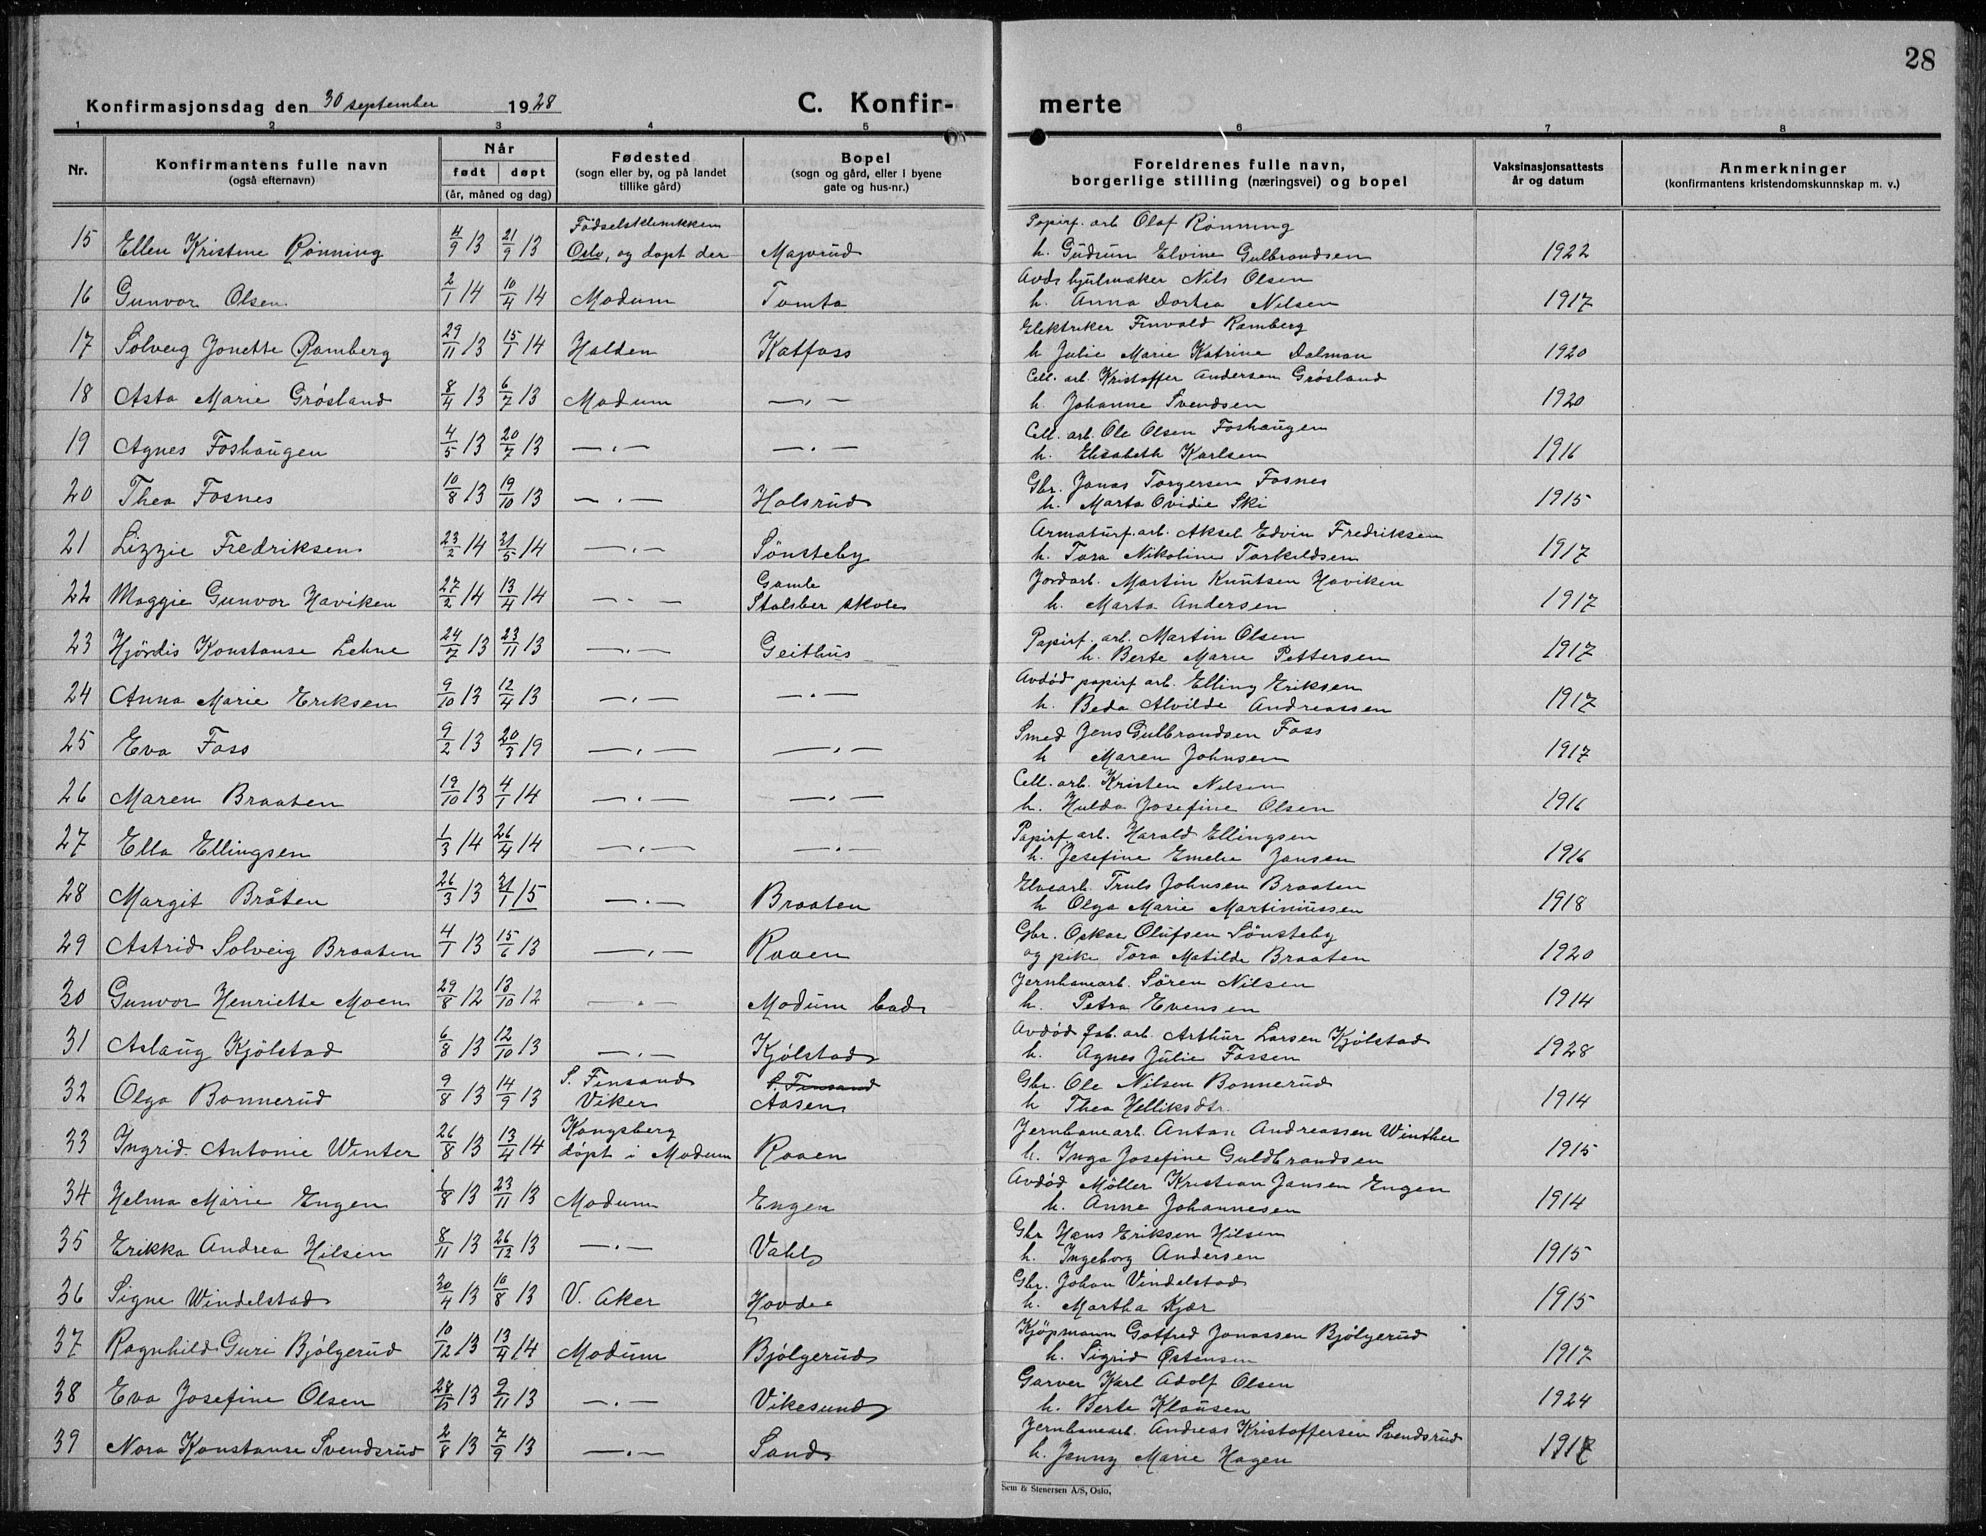 28
Konfirmasjonsdag den 30 september 1928
C. Konfir-
merte
1 2 3 4 5 6 7 8
Nr.
Konfirmantens fulle navn
(også efternavn)
Når
født døpt
(år, måned og dag)
Fødested
(sogn eller by, og på landet
tillike gård)
Bopel
(sogn og gård, eller i byene
gate og hus-nr.)
Foreldrenes fulle navn,
borgerlige stilling (næringsvei) og bopel
Vaksinasjonsattests
år og datum
Anmerkninger
(konfirmantens kristendomskunnskap m. v.)
Fødselsklinikken Papirf. arb. Olaf Rønning
15 Ellen Kristine Rønning 4/9 13 21/9 13 Oslo, og døpt der Majorud h. Gudrun Elvine Gulbrandsen 1922
Avds hjulmaker Nils Olsen
16 Gunvor Olsen 2/1 14 10/4 14 Modum Tomta h. Anna Dortea Nilsen 1917
Elektriker Finvald Ramberg
17 Solveig Jonette Ramberg 29/11 13 15/1 14 Halden Katfoss h Julie Marie Katrine Dalman 1920
Cell. arb. Kristoffer Andersen Grøsland
18 Asta Marie Grøsland 8/4 13 6/7 13 Modum — „ — h. Johanne Svendsen 1920
Cell. arb. Ole Olsen Foshaugen
19 Agnes Foshaugen 4/5 13 20/7 13 — „ — — „ — h. Elisabeth Karlsen 1916
Gbr. Jonas Torgersen Fosnes
20 Thea Fosnes 10/8 13 19/10 13 — „ — Halsrud h. Marta Ovidie Ski 1915
Armaturf. arb. Aksel Edvin Fredriksen
21 Lizzie Fredriksen 23/2 14 31/5 14 — „ — Sønsteby h. Tora Nikoline Torkildsen 1917
Gamle Jordarb. Martin Knutsen Haviken
22 Maggie Gunvor Haviken 27/2 14 13/4 14 — „ — Stalsber skole h. Marta Andersen 1917
Papirf. arb. Martin Olsen
23 Hjørdis Konstanse Lehne 24/7 13 23/11 13 — „ — Geithus h. Berte Marie Pettersen 1917
Avdød papirf arb. Elling Eriksen
24 Anna Marie Eriksen 9/10 13 12/4 13 — „ — — „ — h. Beda Alvilde Andreassen 1917
Smed Jens Gulbrandsen Foss
25 Eva Foss 9/2 13 20/3 19 — „ — — „ — h Maren Johnsen 1917
Cell. arb. Kristen Nilsen
26 Maren Braaten 19/10 13 4/1 14 — „ — — „ — h. Hulda Josefine Olsen 1916
Papirf. arb. Harald Ellingsen
27 Ella Ellingsen 1/3 14 26/4 14 — „ — — „ — h. Josefine Emelie Jansen 1916
Elvearb. Truls Johnsen Braaten
28 Margit Bråten 26/3 13 31/1 15 — „ — Braaten h Olga Marie Martiniussen 1918
Gbr. Oskar Olufsen Sønsteby
29 Astrid Solveig Braaten 4/1 13 15/6 13 — „ — Raaen og pike Tora Matilde Braaten 1920
Jernbanearb. Søren Nilsen
30 Gunvor Henriette Moen 29/8 12 13/10 12 — „ — Modum bad h. Petra Evensen 1914
Avdød fab. arb. Arthur Larsen Kjølstad
31 Aslaug Kjølstad 6/8 13 12/10 13 — „ — Kjølstad h. Agnes Julie Fossen 1928
S. Finsand S. Finsand Gbr. Ole Nilsen Bonnerud
32 Olga Bonnerud 9/8 13 14/9 13 Viker Aasen h Thea Helliksdtr. 1914
Kongsberg Jernbanearb. Anton Andreassen Winther
33 Ingrid Antonie Winter 26/8 13 13/4 14 døpt i Modum Raaen h. Inga Josefine Guldbrandsen 1915
Avdød Møller Kristian Jansen Engen
34 Helma Marie Engen 1/8 13 23/11 13 Modum Engen h. Anne Johannesen 1914
Gbr Hans Eriksen Hilsen
35 Erikka Andrea Hilsen 8/11 13 26/12 13 — „ — Vahl h. Ingeborg Andersen 1915
Gbr. Johan Vindelstad
36 Signe Windelstad 30/4 13 10/8 13 V. Aker Hovde h. Martha Kjær 1915
Kjøpmann Gotfred Jonassen Bjølgerud
37 Ragnhild Guri Bjølgerud 10/12 13 13/4 14 Modum Bjølgerud h. Sigrid Østensen 1917
Garver Karl Adolf Olsen
38 Eva Josefine Olsen 28/5 13 9/11 13 — „ — Vikesund h. Berte Klausen 1924
Jernbanearb. Andreas Kristoffersen Svendsrud
39 Nora Konstanse Svendsrud 2/8 13 7/9 13 — „ — Sand h. Jenny Marie Hagen 1917
Sem & Stenersen A/S, Oslo,